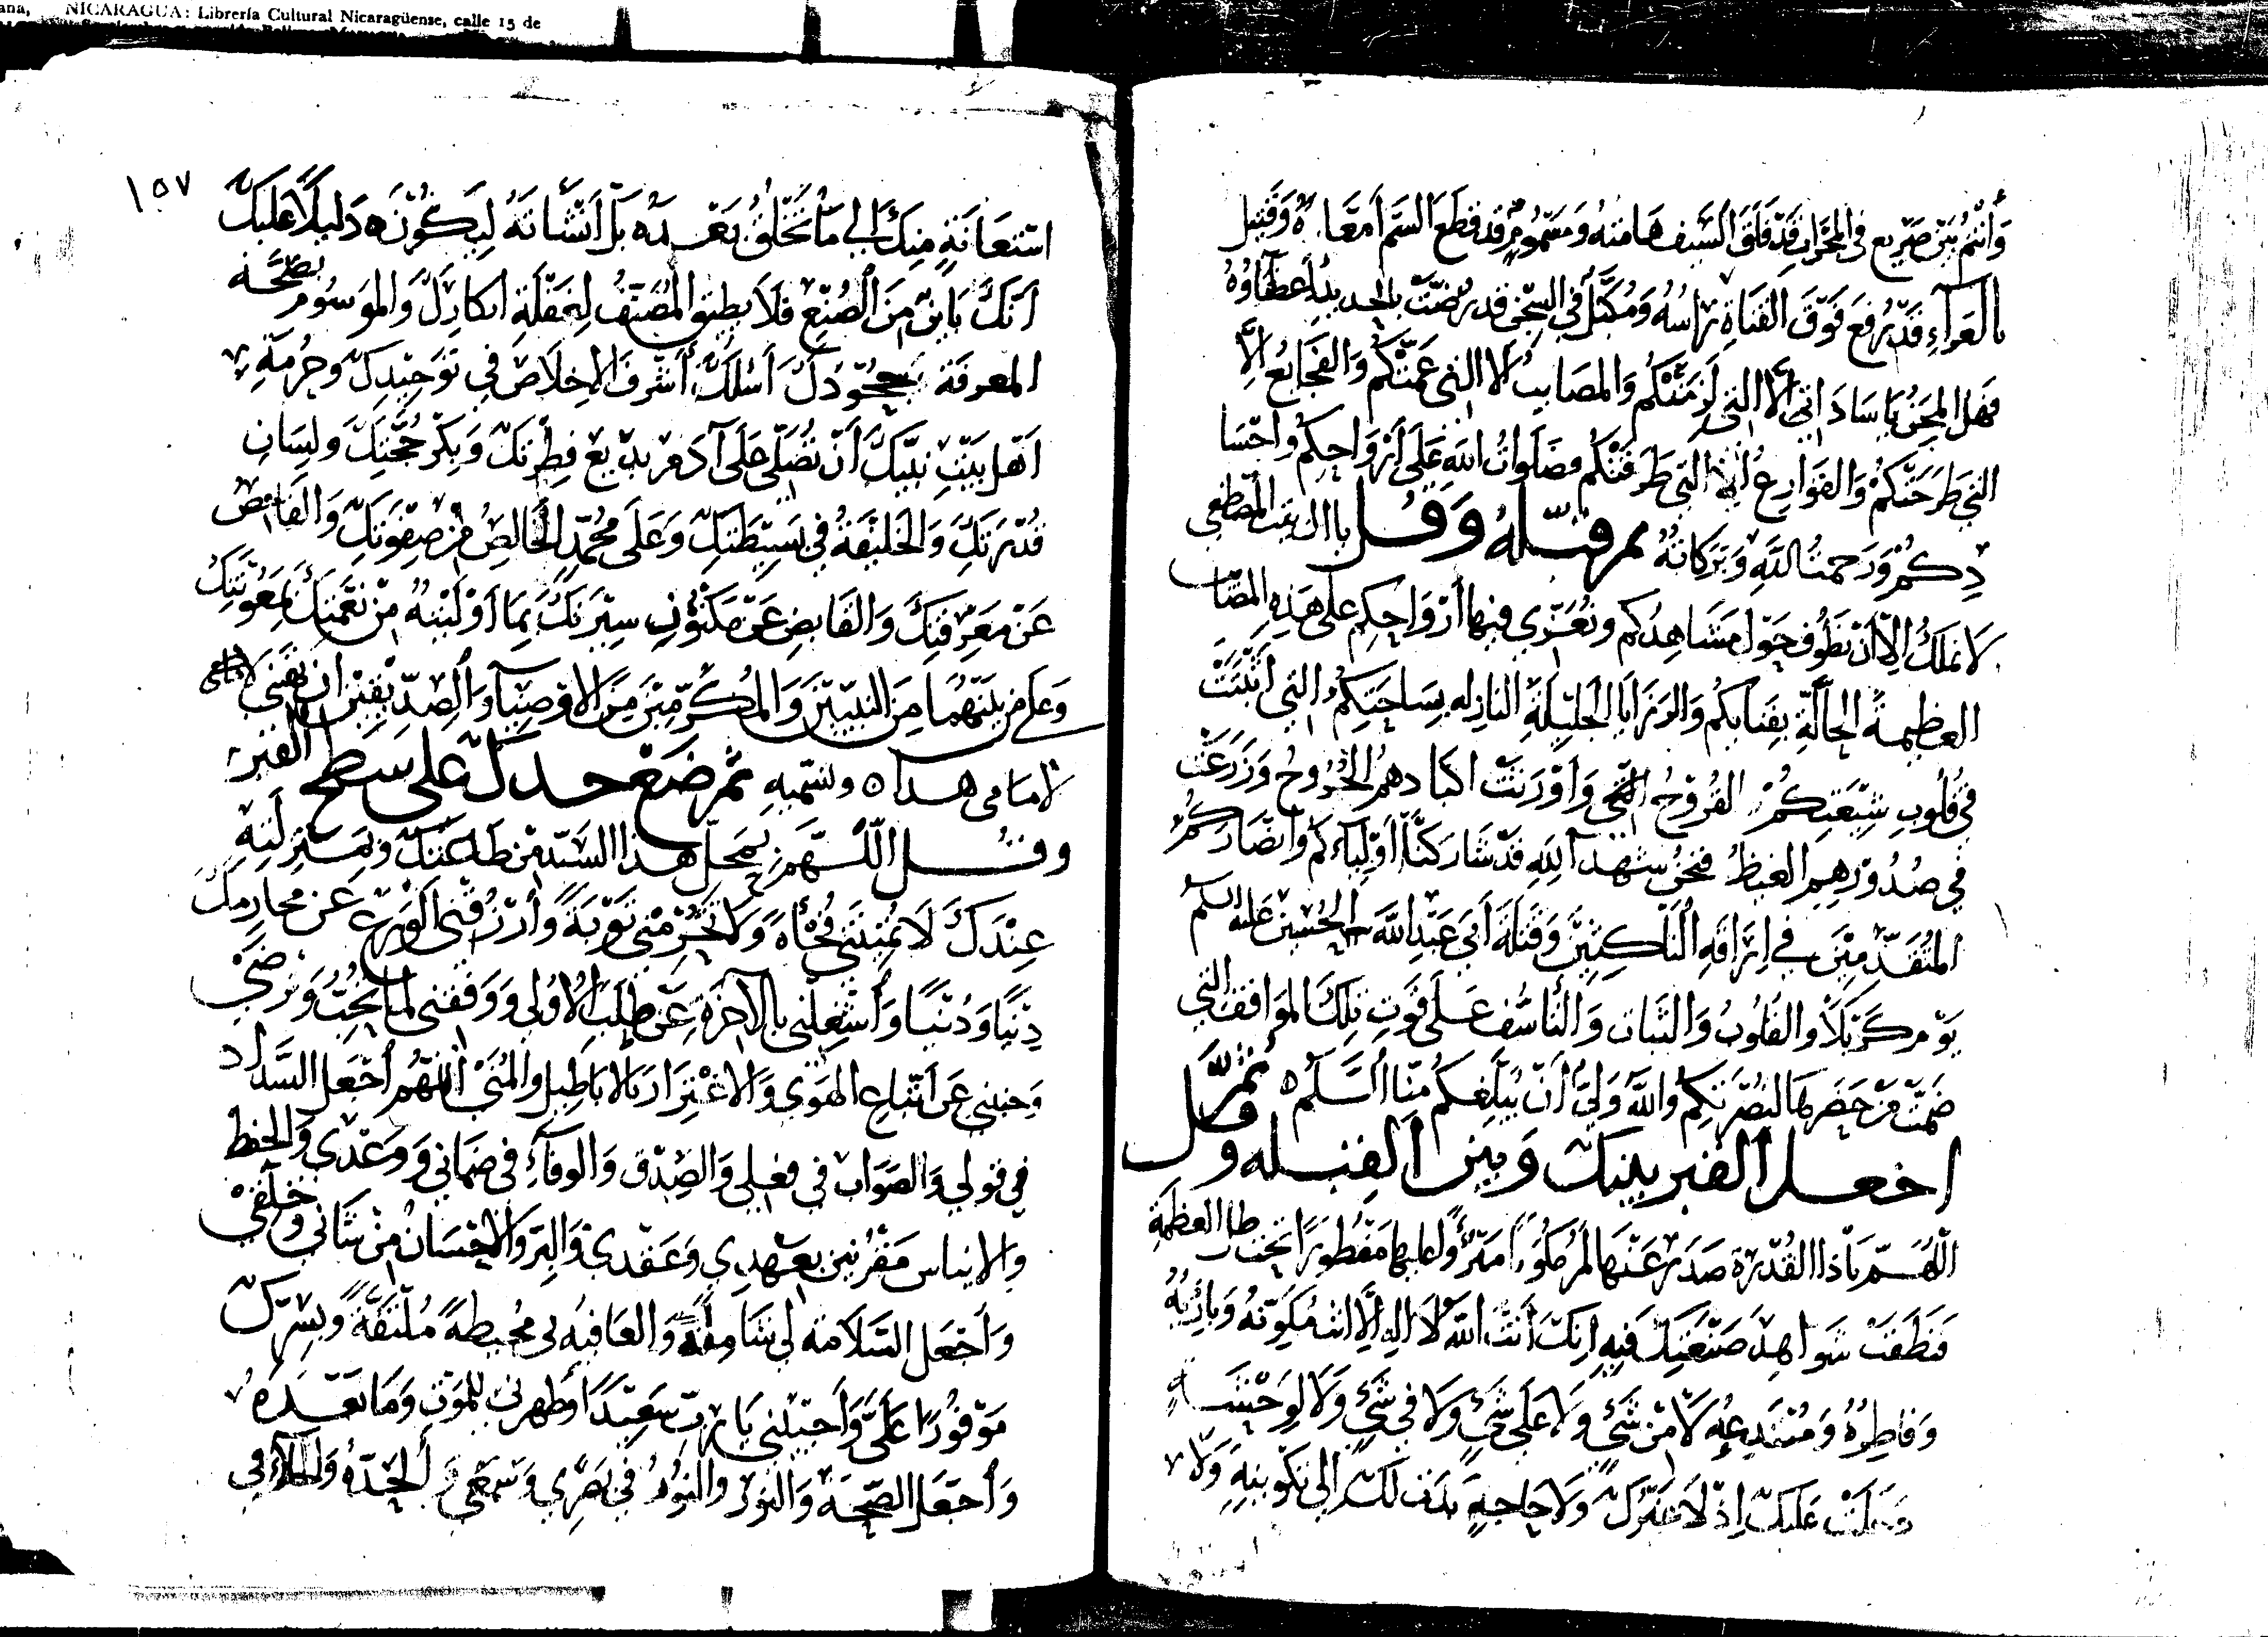 NICARAGUA: Librería Cultural Nicaragüense, calle 15 de
وَأَنْتُمْ بَيْنَ صَرِيعٍ فِي الْمِحْرَابِ قَدْ فَلَقَ السَّيْفُ هَامَتَهُ وَمَسْمُومٍ قَدْ قَطَعَ السَّمُّ أَمْعَاءَهُ وَقَتِيلٍ
بِالْعَرَاءِ قَدْ رُفِعَ فَوْقَ الْقَنَاةِ رَأْسُهُ وَمُكَبَّلٍ فِي السِّجْنِ قَدْ رُضَّتْ بِالْحَدِيدِ أَعْضَاؤُهُ
فَهَلِ الْمِحَنُ يَا سَادَاتِي إِلَّا الَّتِي لَزِمَتْكُمْ وَالْمَصَايِبُ إِلَّا الَّتِي عَمَّتْكُمْ وَالْفَجَايِعُ إِلَّا
الَّتِي طَرَحَتْكُمْ وَالْقَوَارِعُ إِلَّا الَّتِي طَرَقَتْكُمْ فَصَلَوَاتُ اللَّهِ عَلَى أَرْوَاحِكُمْ وَأَجْسَا
دِكُمْ وَرَحْمَةُ اللَّهِ وَبَرَكَاتُهُ ثُمَّ قَبِّلْهُ وَقُلْ يَا آلَ بَيْتِ الْمُصْطَفَى
لَا نَمْلِكُ إِلَّا أَنْ نَطُوفَ حَوْلَ مَشَاهِدِكُمْ وَنُعَزِّي فِيهَا أَرْوَاحَكُمْ عَلَى هَذِهِ الْمَصَايِبِ
الْعَظِيمَةِ الْحَالَّةِ بِفِنَايِكُمْ وَالرَّزَايَا الْجَلِيلَةِ النَّازِلَةِ بِسَاحَتِكُمْ الَّتِي أَثْبَتَتْ
فِي قُلُوبِ شِيعَتِكُمْ الْقُرُوحَ وَأَوْرَثَتْ أَكْبَادَهُمُ الْجُرُوحَ وَزَرَعَتْ
فِي صُدُورِهِمُ الْغَيْظَ فَنَحْنُ نُشْهِدُ اللَّهَ قَدْ شَارَكْنَا أَوْلِيَاءَكُمْ وَأَنْصَارَكُمْ
الْمُتَقَدِّمِينَ فِي إِرَاقَةِ النَّاكِثِينَ وَقَتَلَةِ أَبِي عَبْدِ اللَّهِ الْحُسَيْنِ عَلَيْهِ السَّلَامُ
يَوْمَ كَرْبَلَا وَالْقُلُوبِ وَالنِّيَّاتِ وَالتَّأَسُّفِ عَلَى فَوْتِ تِلْكَ الْمَوَاقِفِ الَّتِي
حَضَرَهَا لِنُصْرَتِكُمْ وَاللَّهُ وَلِيُّ أَنْ يُبَلِّغَكُمْ مِنَّا السَّلَامَ ثُمَّ
اجْعَلِ الْقَبْرَ بَيْنَكَ وَبَيْنَ الْقِبْلَةِ وَقُلْ
اللَّهُمَّ يَا ذَا الْقُدْرَةِ صَدَرَ عَنْهَا الْعَظَمَةِ
فَنَطَقَتْ شَوَاهِدُ صَنْعَتِكَ فِيهِ إِنَّكَ أَنْتَ اللَّهُ لَا إِلَهَ إِلَّا أَنْتَ مُكَوِّنُهُ وَبَارِئُهُ
وَفَاطِرُهُ وَمُبْتَدِعُهُ لَا مِنْ شَيْءٍ وَلَا عَلَى شَيْءٍ وَلَا فِي شَيْءٍ وَلَا لِوَحْشَةٍ
دَخَلَتْ عَلَيْكَ إِذْ لَا غَيْرُكَ وَلَا حَاجَةٍ بَدَتْ لَكَ إِلَى تَكْوِينِهِ وَلَا
١٥٧
اسْتِعَانَةٍ مِنْكَ إِلَى مَا تَخْلُقُ بَعْدَهُ بَلْ أَنْشَأْتَهُ لِيَكُونَ دَلِيلًا عَلَيْكَ
أَنَّكَ بَايِنٌ مِنَ الصُّنْعِ فَلَا يُطِيقُ الْمُصَنِّفُ لِعَقْلِهِ إِنْكَارَكَ وَالْمَوْسُومُ بِصِحَّةِ
الْمَعْرِفَةِ جُحُودَكَ أَسْأَلُكَ أَشْرَفَ الْإِخْلَاصِ فِي تَوْحِيدِكَ وَحُرْمَةِ
أَهْلِ بَيْتِ نَبِيِّكَ أَنْ تُصَلِّيَ عَلَى آدَمَ بَدِيعِ فِطْرَتِكَ وَبِكْرِ حُجَّتِكَ وَلِسَانِ
قُدْرَتِكَ وَالْخَلِيفَةِ فِي بَسِيطَتِكَ وَعَلَى مُحَمَّدٍ الْخَالِصِ مِنْ صَفْوَتِكَ وَالْفَاحِصِ
عَنْ مَعْرِفَتِكَ وَالْقَابِضِ عَنْ مَكْنُونِ سَرِيرَتِكَ بِمَا أَوْلَيْتَهُ مِنْ نِعْمَتِكَ بِمَعُونَتِكَ
وَعَلَى مَنْ بَيْنَهُمَا مِنَ النَّبِيِّينَ وَالْمُكَرَّمِينَ مِنَ الْأَوْصِيَاءِ وَالصِّدِّيقِينَ أَنْ تَهَبَنِي
لِإِمَامِي هَذَا ٥ وَتُسَمِّيهِ ثُمَّ ضَعْ خَدَّكَ عَلَى سَطْحِ الْقَبْرِ
وَقُلِ اللَّهُمَّ بِمَحَلِّ هَذَا السَّيِّدِ مِنْ طَاعَتِكَ وَبِمَنْزِلَتِهِ
عِنْدَكَ لَا تُمِتْنِي فُجْأَةً وَلَا تَحْرِمْنِي تَوْبَةً وَارْزُقْنِي الْوَرَعَ عَنْ مَحَارِمِكَ
دِينًا وَدُنْيًا وَأَشْغِلْنِي بِالْآخِرَةِ عَنْ طَلَبِ الْأُولَى وَوَفِّقْنِي لِمَا تُحِبُّ وَتَرْضَى
وَجَنِّبْنِي عَنِ اتِّبَاعِ الْهَوَى وَالِاغْتِرَارِ بِالْأَبَاطِيلِ وَالْمُنَى اللَّهُمَّ اجْعَلِ السَّدَادَ
فِي قَوْلِي وَالصَّوَابَ فِي فِعْلِي وَالصِّدْقَ وَالْوَفَاءَ فِي ضَمَانِي وَوَعْدِي وَالْحِفْظَ
وَالْإِينَاسَ مَقْرُونَيْنِ بِعَهْدِي وَعَقْدِي وَالْبِرَّ وَالْإِحْسَانَ مِنْ شَانِي وَخُلُقِي
وَاجْعَلِ السَّلَامَةَ لِي شَامِلَةً وَالْعَافِيَةَ بِي مُحِيطَةً مُلْتَفَّةً وَسِتْرَكَ
مَوْفُورًا عَلَيَّ وَأَحْيِنِي يَا رَبِّ سَعِيدًا وَطَهِّرْنِي لِلْمَوْتِ وَمَا بَعْدَهُ
وَاجْعَلِ الصِّحَّةَ وَالنُّورَ فِي بَصَرِي وَسَمْعِي وَالْجِدَةَ